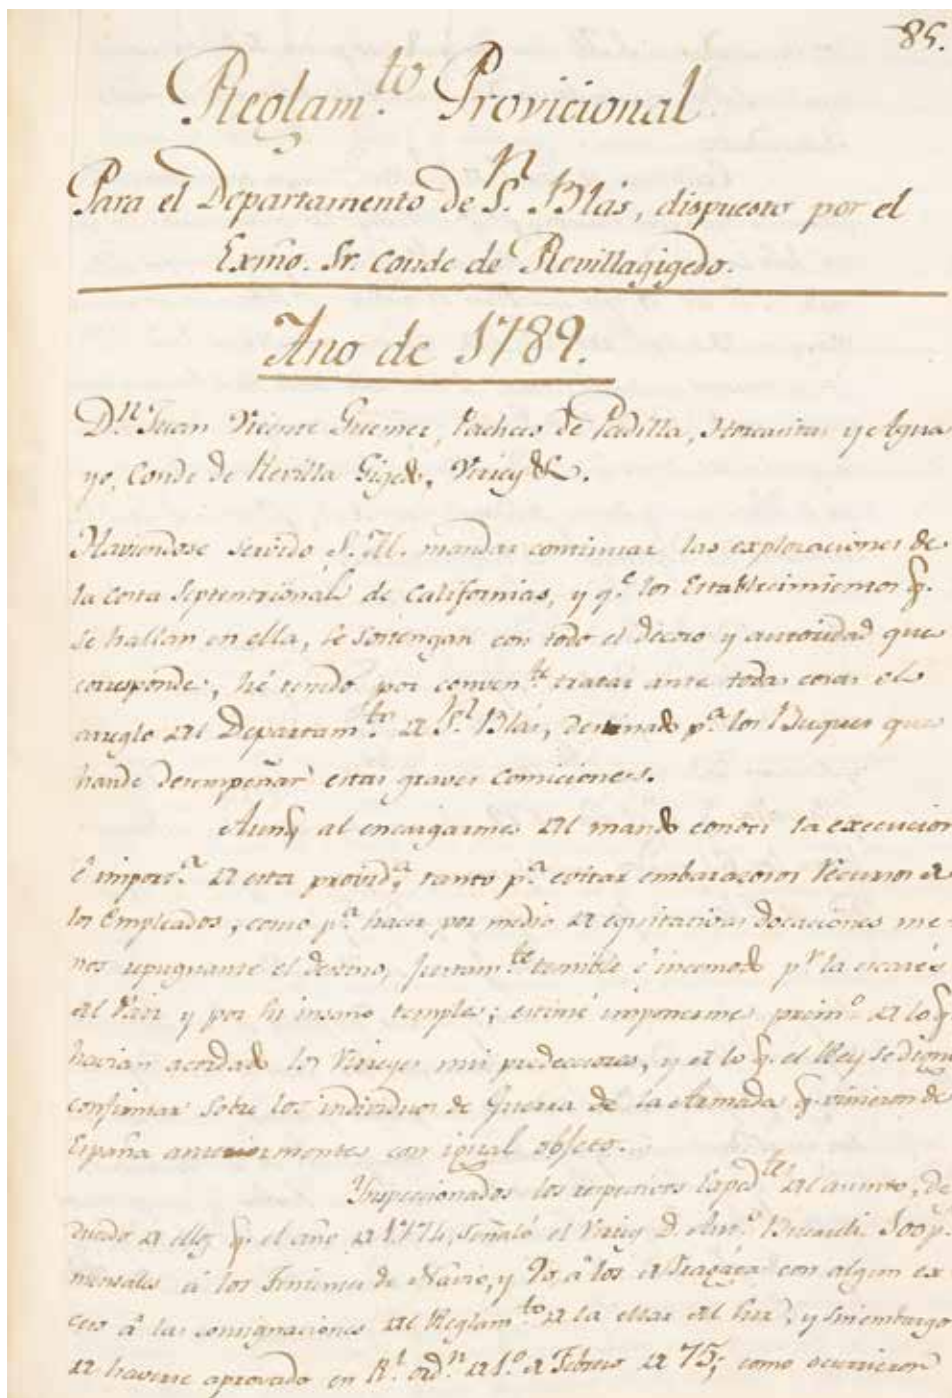 85.
Reglam.to Provicional
Para el Departamento de S.n Blás, dispuesto por el
Exmo. Sr. Conde de Revillagigedo.
Ano de 1789.
D.n Juan Vicente Güemez, Pacheco de Padilla, Horcasitas y Agua
yo, Conde de Revilla Gigedo, Virrey &.
Haviendose servido S. M. mandar continuar las exploraciones de
la costa Septentrional de Californias, y q.e los Establecimientos q.
se hallan en ella, se sostengan con todo el decoro y autoridad que
corresponde, hé tenido por conven.te tratar ante todas cosas el
arreglo del Departam.to de S.n Blás, destinado p.a los Buques que
hande desempeñar estas graves comiciones.
Aunq. al encargarme del mando conocí la execucion
é import.a de esta provid.a tanto p.a evitar embarazosos recursos de
los Empleados, como p.a hacer por medio de equitativas dotaciones me-
nos repugnante el destino, justam.te temible é incomodo p.r la escaréz
del País y por su insano temple; estimé imponerme prim.o de lo q.
havian acordado los Virreyes mis predecesores, y de lo q. el Rey se digno
confirmar sobre los individuos de Guerra de la Armada q. vinieron de
España anteriormente con igual objeto.
Inspeccionados los respectivos Exped.tes del asunto, de
duzco de ellos q. el año de 1774, señaló el Virrey D. Ant.o Bucareli 100 p.s
mensales á los Tenientes de Navio, y 90 á los de Fragáta con algun ex
ceso á las consignaciones del Reglam.to de la Mar del Sur, y sin embargo
de haverse aprovado en R.l ord.n de 1.o de Febrero de 75; como ocurrieron